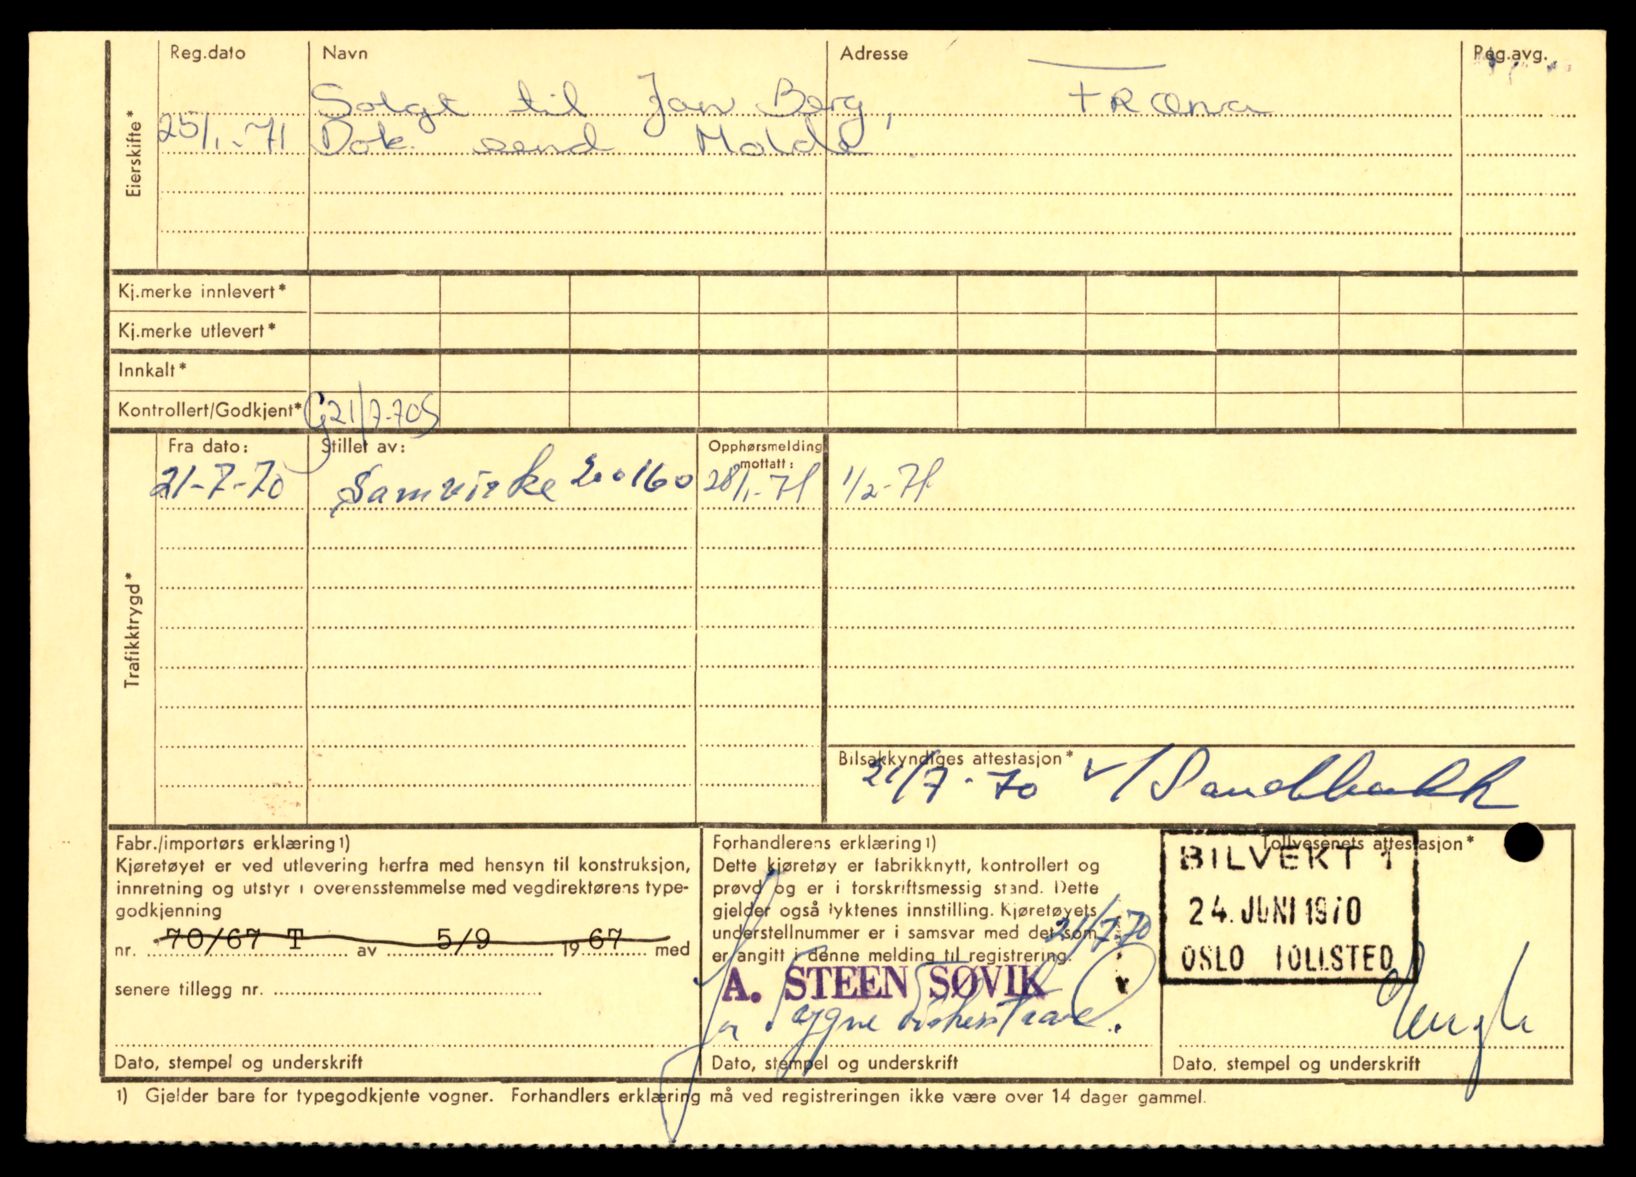 Reg.dato Navn Adresse Reg.avg.
Eierskifte*
Solgt til Jan Berg, Fræna
25/1-71 Dok. send Molde.
Kj.merke innlevert*
Kj.merke utlevert*
Innkalt*
Kontrollert/Godkjent* G21/7-70S
Trafikktrygd*
Fra dato: Stillet av: Opphørsmelding mottatt:
21-7-70 Samvirke 200160 28/1-71 1/2-71
Bilsakkyndiges attestasjon*
21/7-70 v/Sandbakk
Fabr./importørs erklæring1)
Kjøretøyet er ved utlevering herfra med hensyn til konstruksjon,
innretning og utstyr i overensstemmelse med vegdirektørens type-
godkjenning
nr. 70/67 T av 5/9 1967 med
senere tillegg nr.
Dato, stempel og underskrift
Forhandlerens erklæring1)
Dette kjøretøy er fabrikknytt, kontrollert og
prøvd og er i forskriftsmessig stand. Dette
gjelder også lyktenes innstilling. Kjøretøyets
understellnummer er i samsvar med det som
er angitt i denne melding til registrering.
21/7-70
A. STEEN SØVIK
Dato, stempel og underskrift
Tollvesenets attestasjon*
BILVEKT 1
24. JUNI 1970
OSLO TOLLSTED
Dato, stempel og underskrift
1) Gjelder bare for typegodkjente vogner. Forhandlers erklæring må ved registreringen ikke være over 14 dager gammel.